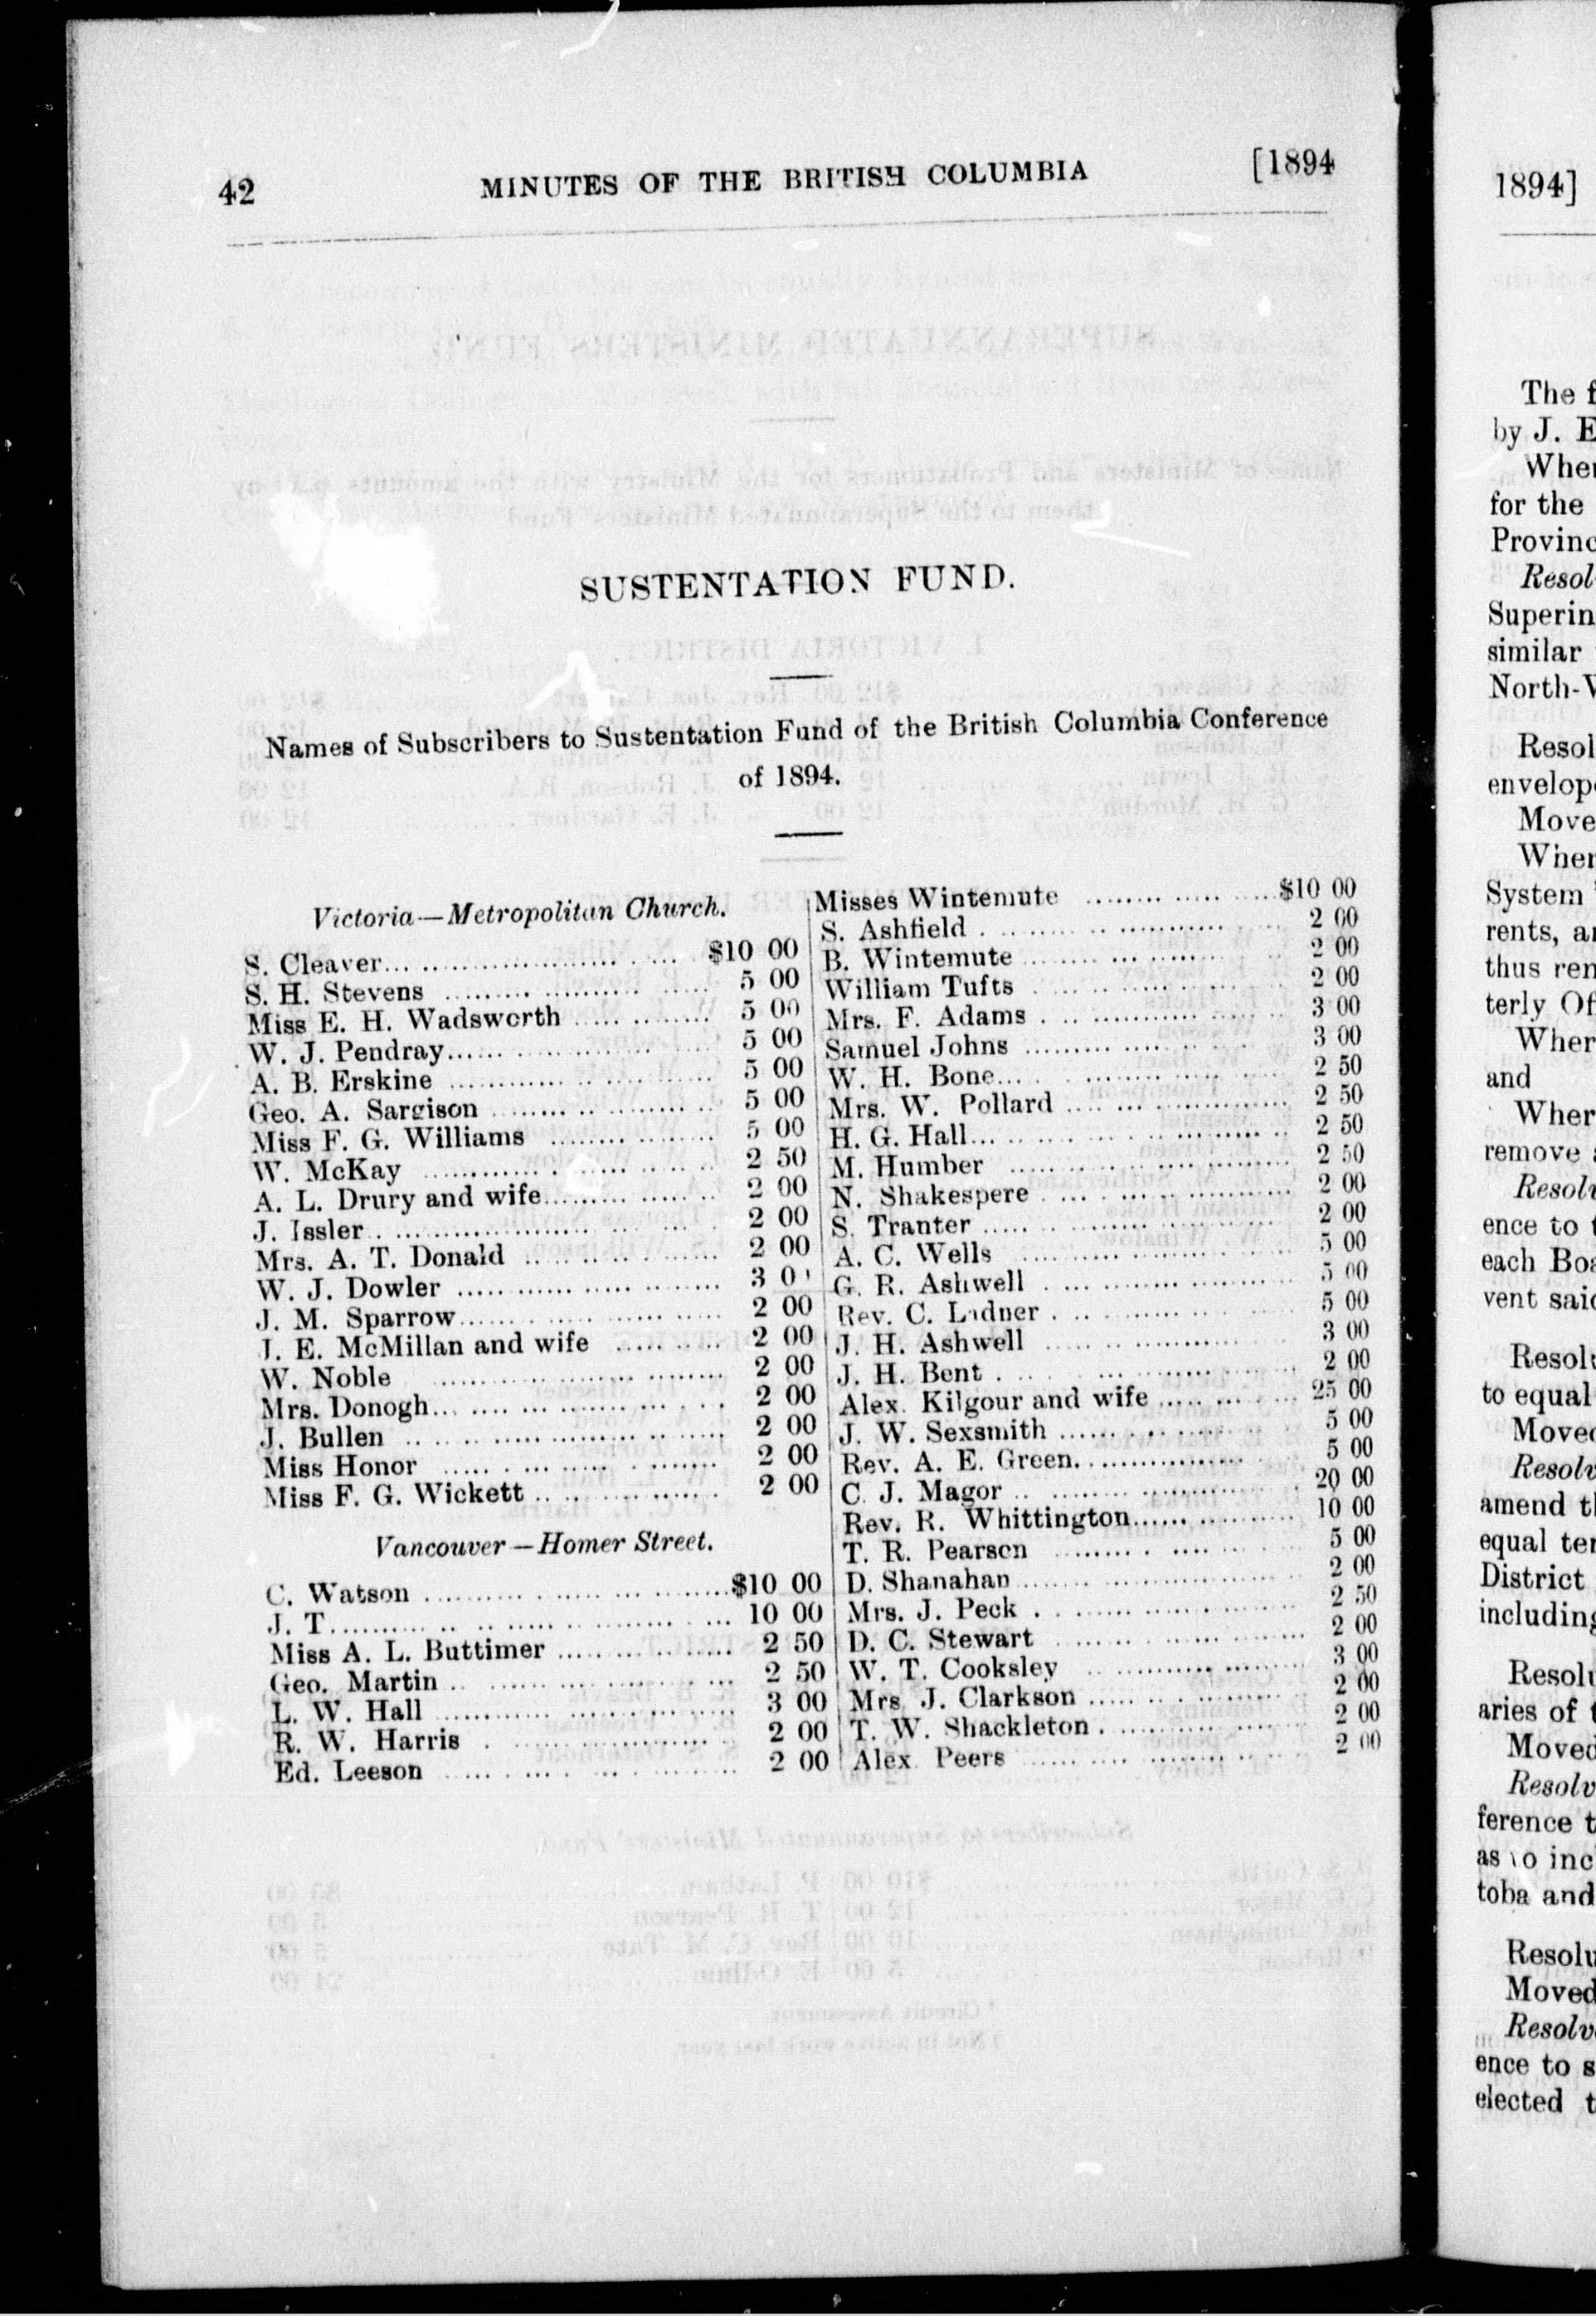 42 MINUTES OF THE BRITISH COLUMBIA [1894
SUSTENTATION FUND.
Names of Subscribers to Sustentation Fund of the British Columbia Conference
of 1894.
Victoria—Metropolitan Church.
S. Cleaver $10 00
S. H. Stevens 5 00
Miss E. H. Wadsworth 5 00
W. J. Pendray 5 00
A. B. Erskine 5 00
Geo. A. Sargison 5 00
Miss F. G. Williams 5 00
W. McKay 2 50
A. L. Drury and wife 2 00
J. Issler 2 00
Mrs. A. T. Donald 2 00
W. J. Dowler 3 0
J. M. Sparrow 2 00
J. E. McMillan and wife 2 00
W. Noble 2 00
Mrs. Donogh 2 00
J. Bullen 2 00
Miss Honor 2 00
Miss F. G. Wickett 2 00
Vancouver—Homer Street.
C. Watson $10 00
J. T. 10 00
Miss A. L. Buttimer 2 50
Geo. Martin 2 50
L. W. Hall 3 00
R. W. Harris 2 00
Ed. Leeson 2 00
Misses Wintemute $10 00
S. Ashfield 2 00
B. Wintemute 2 00
William Tufts 2 00
Mrs. F. Adams 3 00
Samuel Johns 3 00
W. H. Bone 2 50
Mrs. W. Pollard 2 50
H. G. Hall 2 50
M. Humber 2 50
N. Shakespere 2 00
S. Tranter 2 00
A. C. Wells 5 00
G. R. Ashwell 5 00
Rev. C. Ladner 5 00
J. H. Ashwell 3 00
J. H. Bent 2 00
Alex. Kilgour and wife 25 00
J. W. Sexsmith 5 00
Rev. A. E. Green 5 00
C. J. Magor 20 00
Rev. R. Whittington 10 00
T. R. Pearson 5 00
D. Shanahan 2 00
Mrs. J. Peck 2 50
D. C. Stewart 2 00
W. T. Cooksley 3 00
Mrs J. Clarkson 2 00
T. W. Shackleton 2 00
Alex Peers 2 00
1894]
The f
by J. E
Wher
for the
Provinc
Resol
Superin
similar
North-W
Resol
envelop
Move
When
System
rents, a
thus ren
terly Of
Wher
and
Wher
remove
Resolv
ence to t
each Boa
vent said
Resol
to equal
Moved
Resolv
amend t
equal ter
District
including
Resolu
aries of t
Moved
Resolv
ference t
as to inc
toba and
Resolu
Moved
Resolv
ence to s
elected t